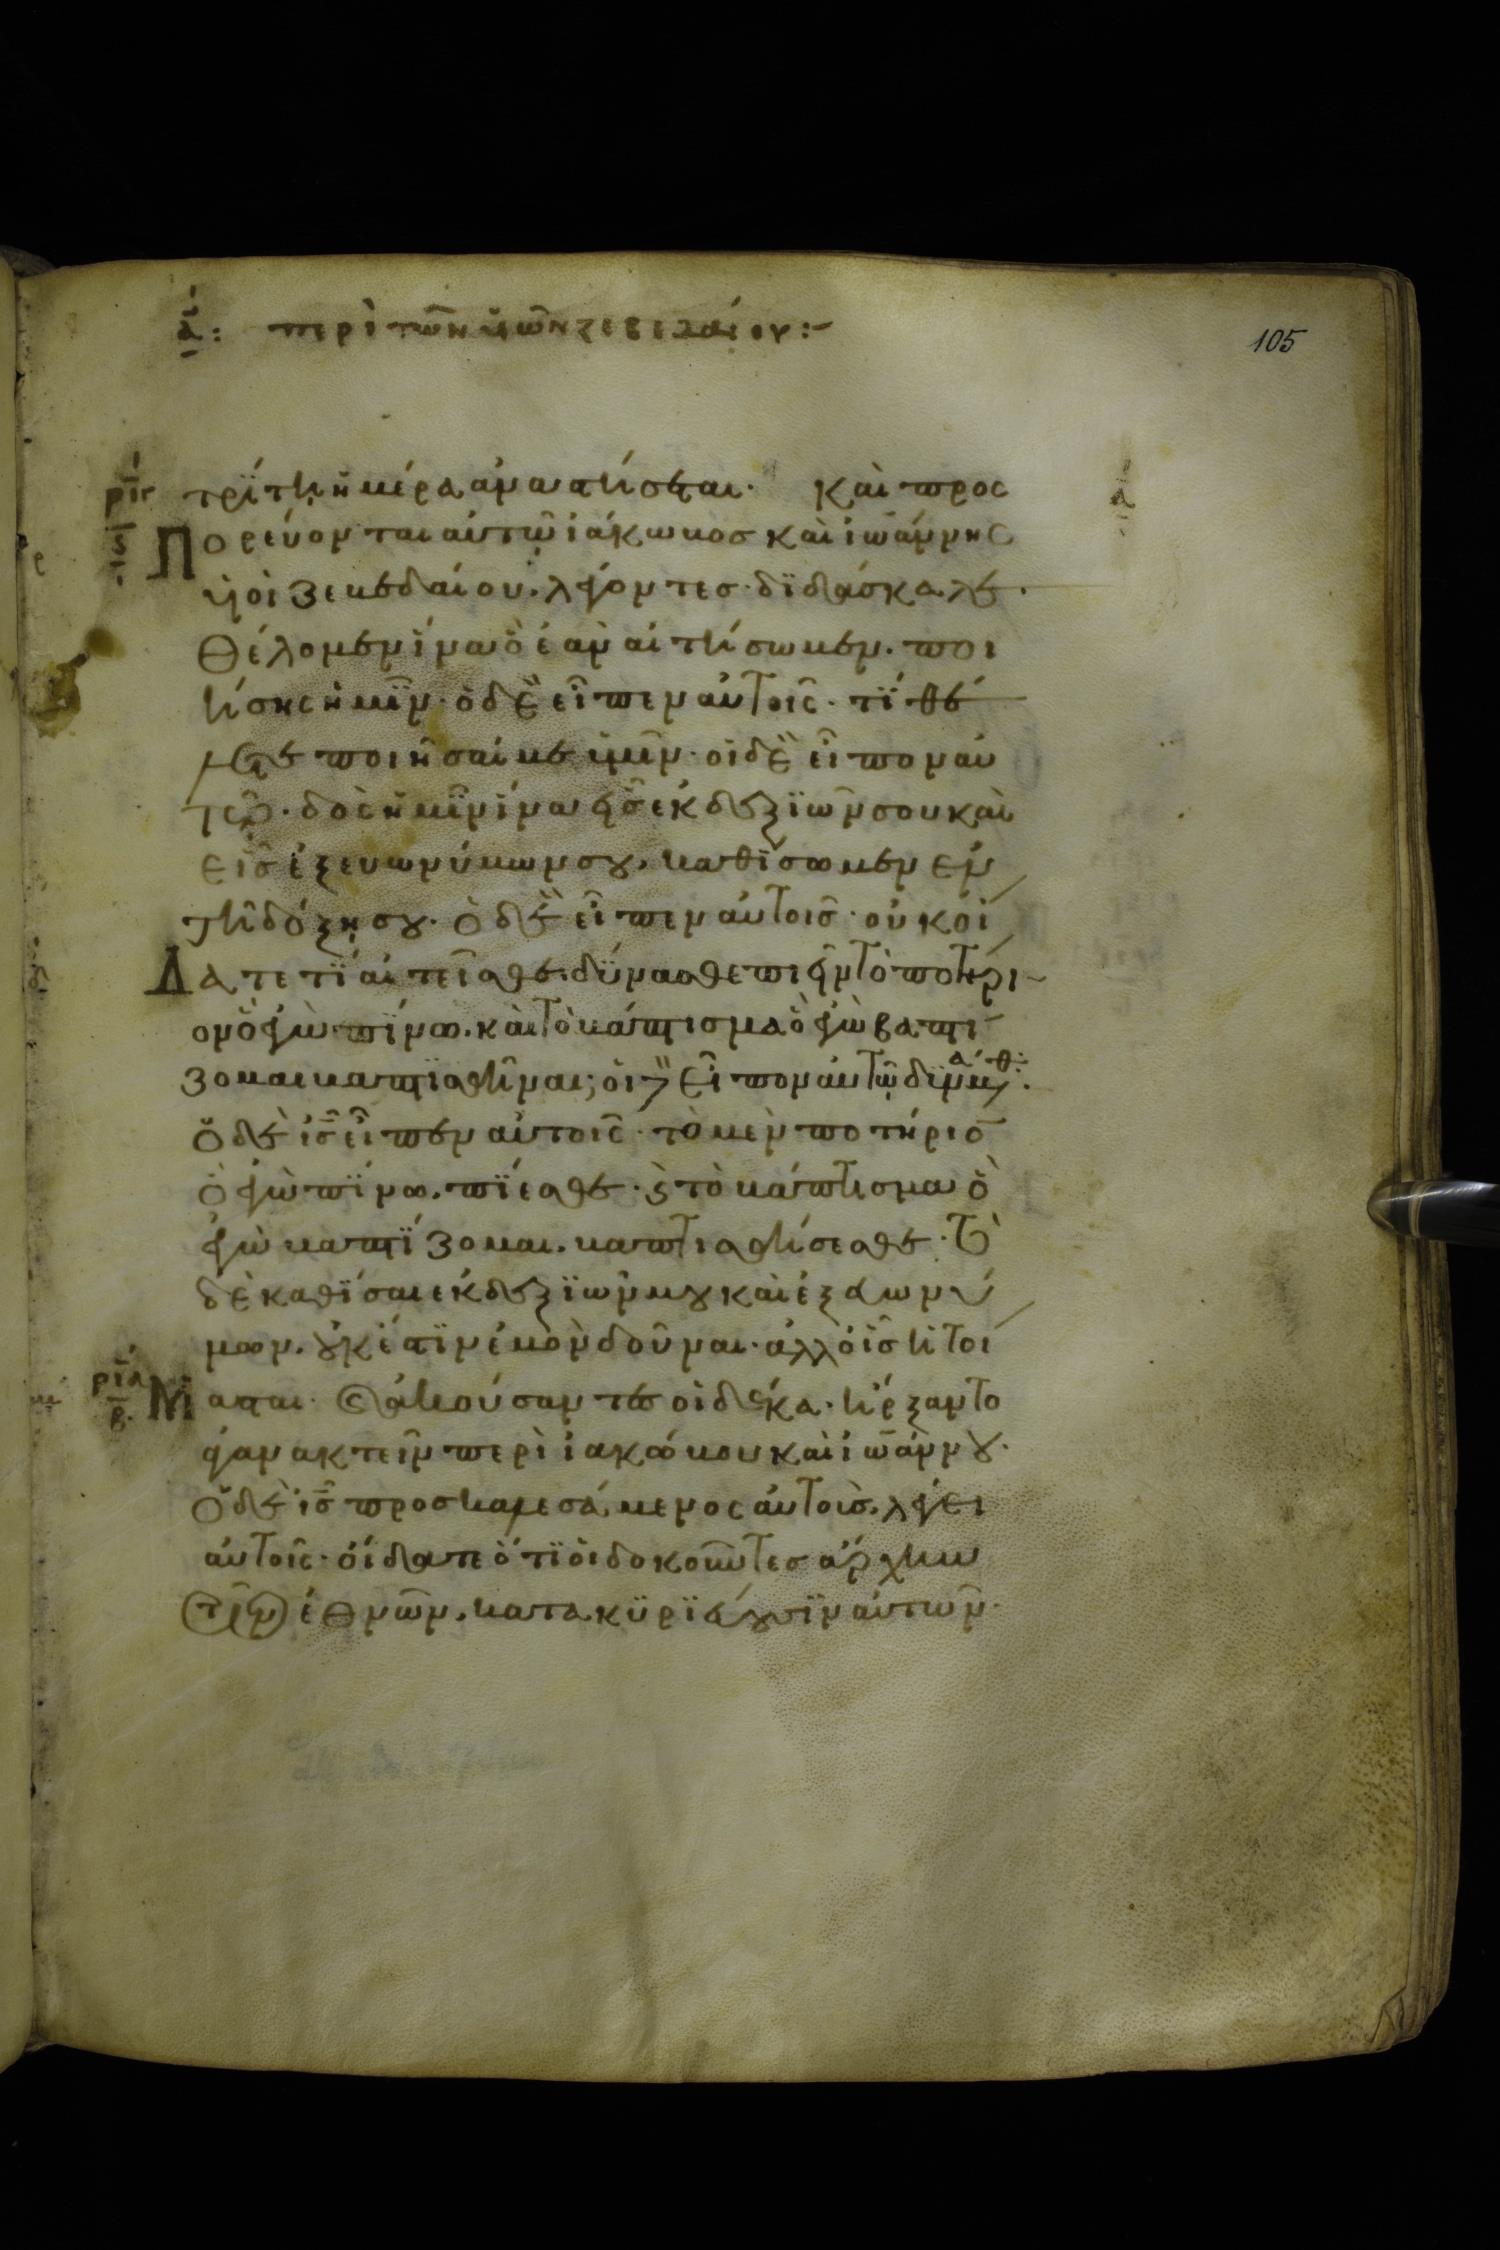 λ̄: περὶ τῶν υἱῶν ζεβεδαίου:–
105
τρϊτη ἡμέρα ἀναστήσεται· καὶ προσ
Πορεύονται αὐτῶ ἰάκωβος καὶ ἰω̄άννης
ὑϊοὶ ζεβεδαίου. λέγοντες· δϊδάσκαλε·
θέλομεν ἵνα ὃ ἐὰν αἰτήσωμεν. ποι
ήσης ἡμῖν· ὁ δὲ εἶπεν αὐτοῖς· τϊ θέ
λετε ποιῆσαί με ὑμῖν· οἱ δὲ εἶπον αὐ
τῶ· δὸς ἡμῖν ἵνα εἷς ἐκ δεξϊῶν σου καὶ
εἷς ἐξ εὐωνύμων σου. καθίσωμεν ἐν
τῆ δόξη σου· ὁ δὲ εἶπεν αὐτοῖς· οὐκ οἴ
Δατε τϊ αἰτεῖσθε· δύνασθε πιεῖν τὸ ποτήρι
ον ὃ ἐγὼ πίνω. καὶ τὸ βάπτισμα ὃ ἐγὼ βαπτι
ζομαι βαπτϊσθῆναι; οἱ δὲ εἶπον αὐτῶ δϊνάμεθα:
Ὁ δὲ ι̅ς̅ εἶπεν αὐτοῖς· τὸ μὲν ποτήριο̅
ὃ ἐγὼ πϊνω. πϊεσθε· ϗ τὸ βάπτισμα ὃ
ἐγὼ βαπτϊζομαι. βαπτισθήσεσθε· τὸ
δὲ καθϊσαι ἐκ δεξϊῶν μου καὶ ἐξ εὐωνύ
μων. οὐκ ἔστϊν ἐμὸν δοῦναι· ἀλλ' οἷς ἡτοί
Μασται· ϗ ἀκούσαντες οἱ δέκα· ἤρξαντο
ἀγανακτεῖν περὶ ἰακώβου καὶ ἰω̄άννου·
Ὁ δὲ ι̅ς̅ προσκαλεσάμενος αὐτοὺς. λέγει
αὐτοῖς· οἴδατε ὅτϊ οἱ δοκοῦντες ἄρχειν
τῶν ἐθνῶν. κατακυρϊεύουσϊν αὐτῶν·